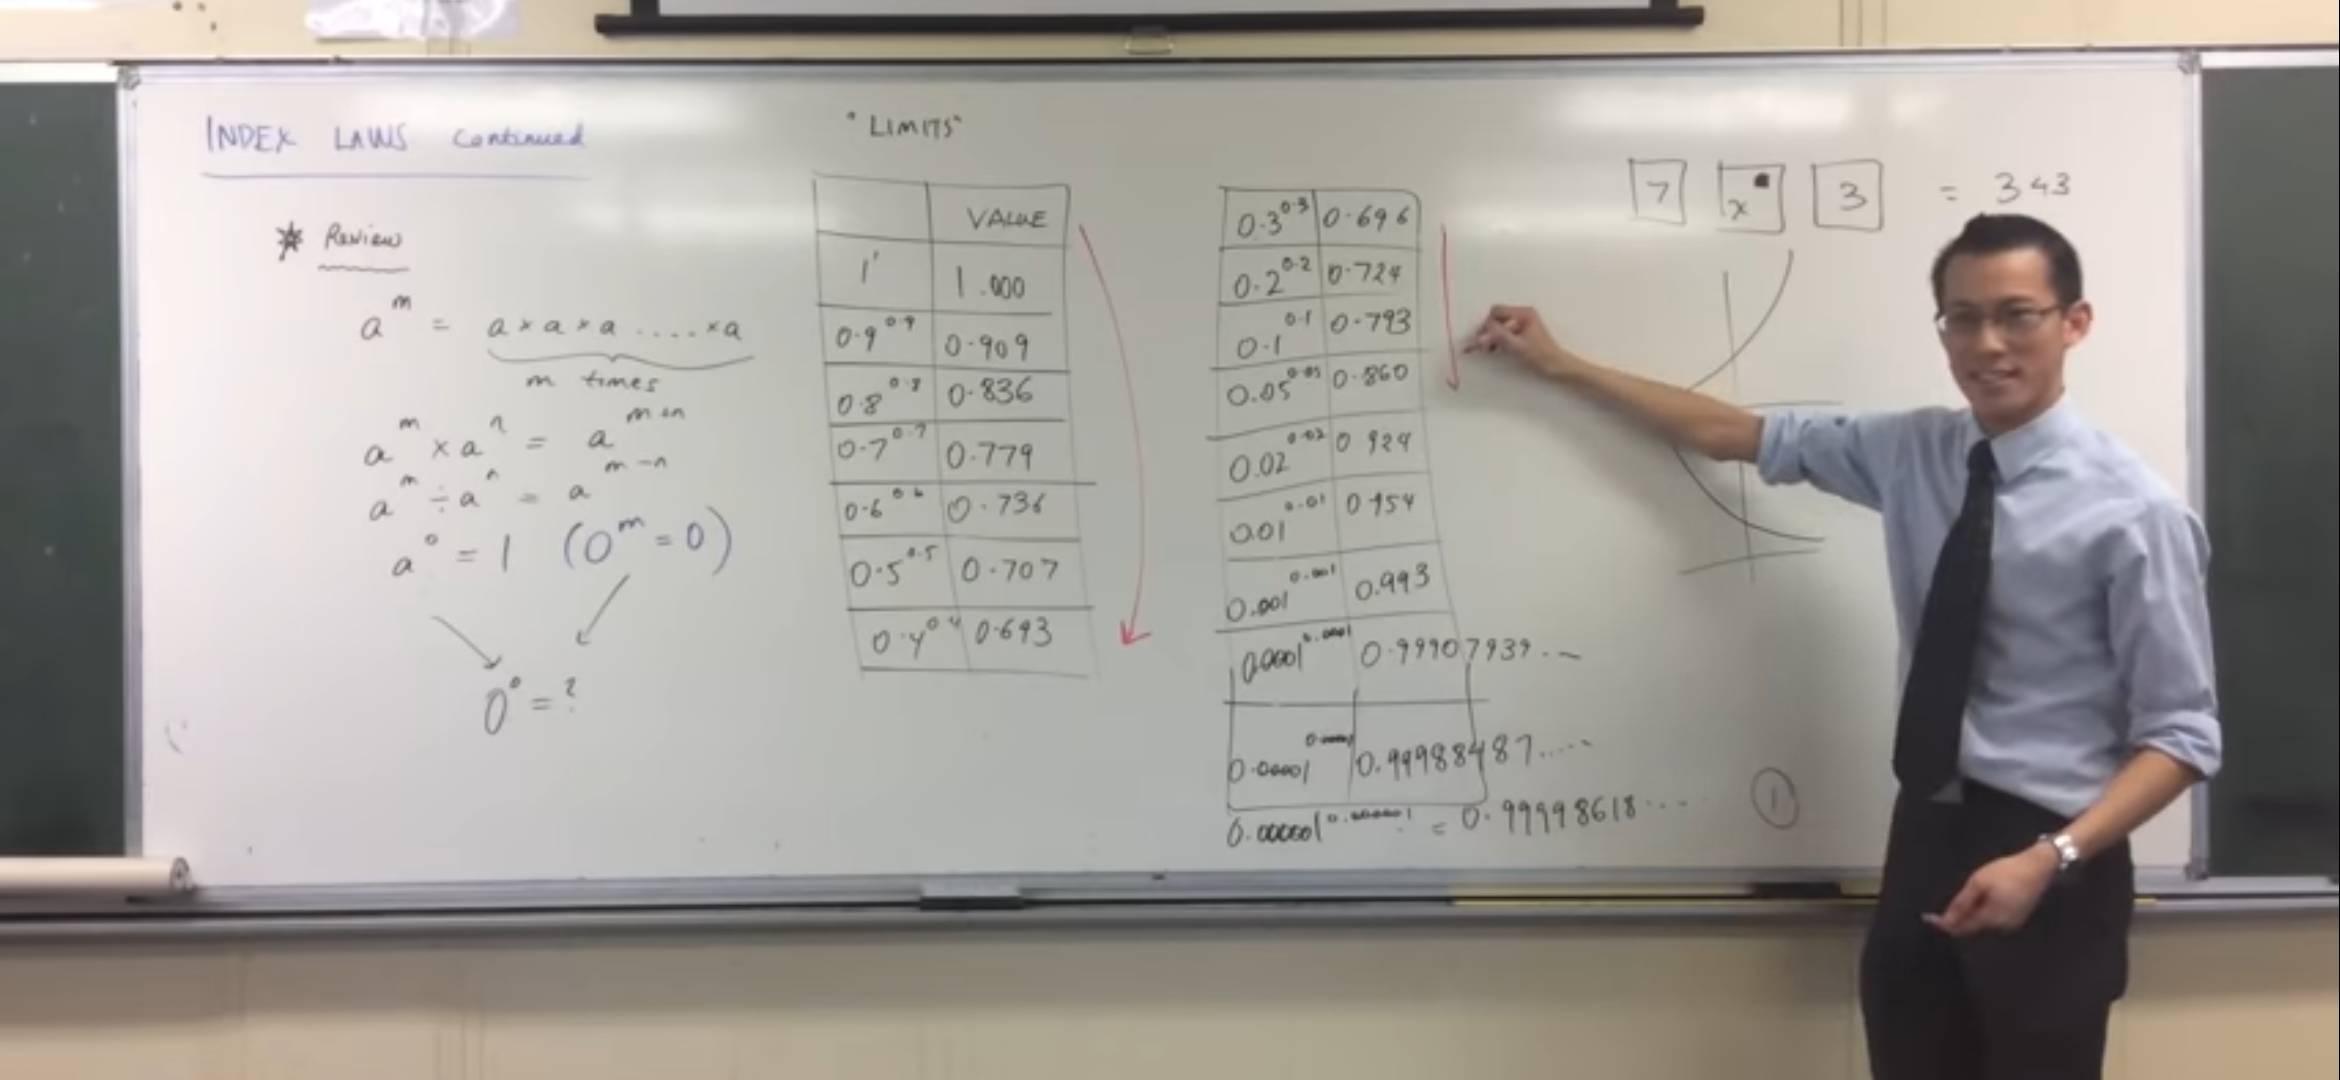 INDEX LAWS continued
* Review
a^m = a × a × a ..... × a
m times
a^m × a^n = a^(m+n)
a^m ÷ a^n = a^(m-n)
a^0 = 1 (0^m = 0)
0^0 = ?
"LIMITS"
VALUE
1^1 1.000
0.9^0.9 0.909
0.8^0.8 0.836
0.7^0.7 0.779
0.6^0.6 0.736
0.5^0.5 0.707
0.4^0.4 0.693
0.3^0.3 0.696
0.2^0.2 0.724
0.1^0.1 0.793
0.05^0.05 0.860
0.02^0.02 0.924
0.01^0.01 0.954
0.001^0.001 0.993
0.0001^0.0001 0.99907939...
0.00001^0.00001 0.99988487.....
0.000001^0.000001 = 0.99998618.....
1
7 x^■ 3 = 343